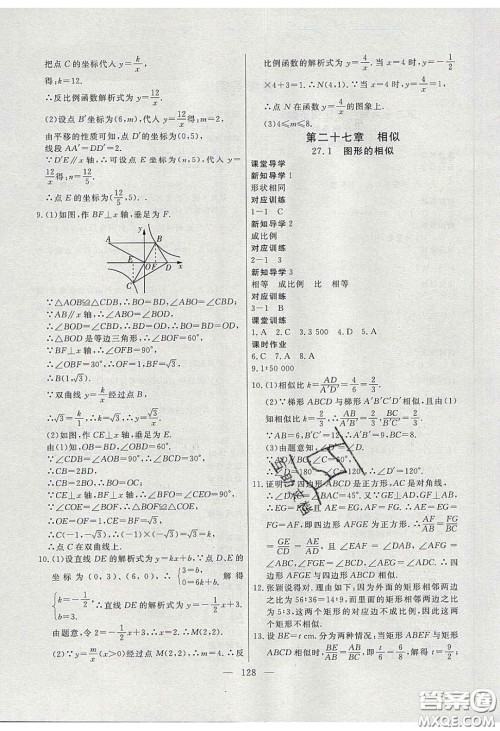 把点 C 的坐标代入 y=k/x
得;k=12.
∴反比例函数解析式为 y=12/x
(2)设点 D′的坐标为(6,m),代入得;m=2.
由平移的性质可知,点 D 的坐标为(0,5),
线段 AA′=DD′=5.
∵D′E∥x 轴,∴可设点 E 的坐标为(12/5,5).
∴点 E 的坐标为(12/5,5).
9.(1)如图,作 BF⊥x 轴,垂足为 F.
y
A
B
O
E
F
D
x
C
∵△AOB≌△CDB,∴BO=BD,∠ABO=∠CBD.
∵AB∥x 轴,∴∠ABO=∠BOD,
∴∠CBD=∠BOD.
∴△BOD 是等边三角形.∴∠BOF=60°.
∵BF⊥x 轴,∴∠OFB=90°.
∴∠OBF=30°.∴OF=1.BF=√3.
∴B(1,√3).
∵双曲线 y=k/x经过点 B,
∴√3=k/1.∴k=√3.∴y=√3/x.
(2)如图,作 CE⊥x 轴,垂足为 E.
由(1)知,OB=BD,∠OBD=60°.
∵∠CDB=∠AOB=90°,∴∠BCD=30°.
∴CB=2BD.
∴CB=2BO.∴CO=BO.
∵CE⊥x 轴,BF⊥x 轴,∴∠BFO=∠CEO=90°.
∵∠COE=∠BOF,∴△COE≌△BOF.
∴OE=OF=1,CE=BF=√3.
∴C(-1,-√3).
∴点 C 在双曲线上.
10.(1)设直线 DE 的解析式为 y=kx+b.∵点 D,E 的
坐标为(0,3),(6,0),∴{3=b, 0=6k+b. 解得
{k=-1/2, b=3. ∴直线 DE 的解析式为 y=-1/2x+3.
由题意,令 2=-1/2x+3.∴x=2.∴M(2,2).
(2)∵y=m/x(x>0)经过点 M(2,2),∴m=4.∴反
比例函数的解析式为 y=4/x.当 x=4 时,y=-1/2
×4+3=1.∴N(4,1).∵当 x=4 时,y=4/x=1,
∴点 N 在函数 y=4/x的图象上.
(3)4≤m≤8.
第二十七章 相似
27.1 图形的相似
课堂导学
新知导学 1
形状相同
对应训练
1-1 C
新知导学 2
成比例
对应训练
2-1 3
新知导学 3
相等 成比例 比 相等
对应训练
3-1 C
课堂训练
1.A 2.C 3.3 500 4.C 5.C
课时作业
6.C 7.A 8.A
9.1∶50 000
10.(1)相似比 k=AD/A′D′=4/6=2/3.
(2)∵梯形 ABCD 与梯形 A′B′C′D′相似,且由(1)
知相似比 k=2/3,∴AB/A′B′=2/3,BC/B′C′=2/3.
∵AB=6,B′C′=12,∴A′B′=9,BC=8.
(3)由题意知,
∠D=180°-∠C=120°.∴∠D′=∠D=120°.
11.证明:∵四边形 ABCD 是正方形,AC 是对角线,
∴∠DAC=∠BAC=45°.又∵EF⊥AB,EG⊥AD,
∴EF=EG=AF=AG.∵四边形 ABCD 是正方形,
且 EF=FA=AG,即四边形 AFGE 为正方形.∴AF/AB=FE/BC
=GE/CD=AG/AD,且 ∠EAF=∠DAB,∠AFE=
∠ABC.∴四边形 AFEG 与四边形 ABCD 相似.
12.张颖说得对.理由如下;因为外面的矩形相邻两边之
比为 56∶36=14∶9,里面的矩形相邻两边之比为
50∶30=5∶3,这两个矩形的对应边不成比例,因此
这两个矩形不相似.
13.设 BE=t cm.分为两种情况;当矩形 ABEF 与矩形
ABCD 相似时,BE/AB=AB/BC,即t/6=6/8,解得;t=9/2;
128
答案圈
MXQE.COM